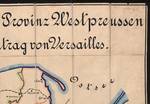 Provinz Westpreussen
trag von Versailles.
Ostsee